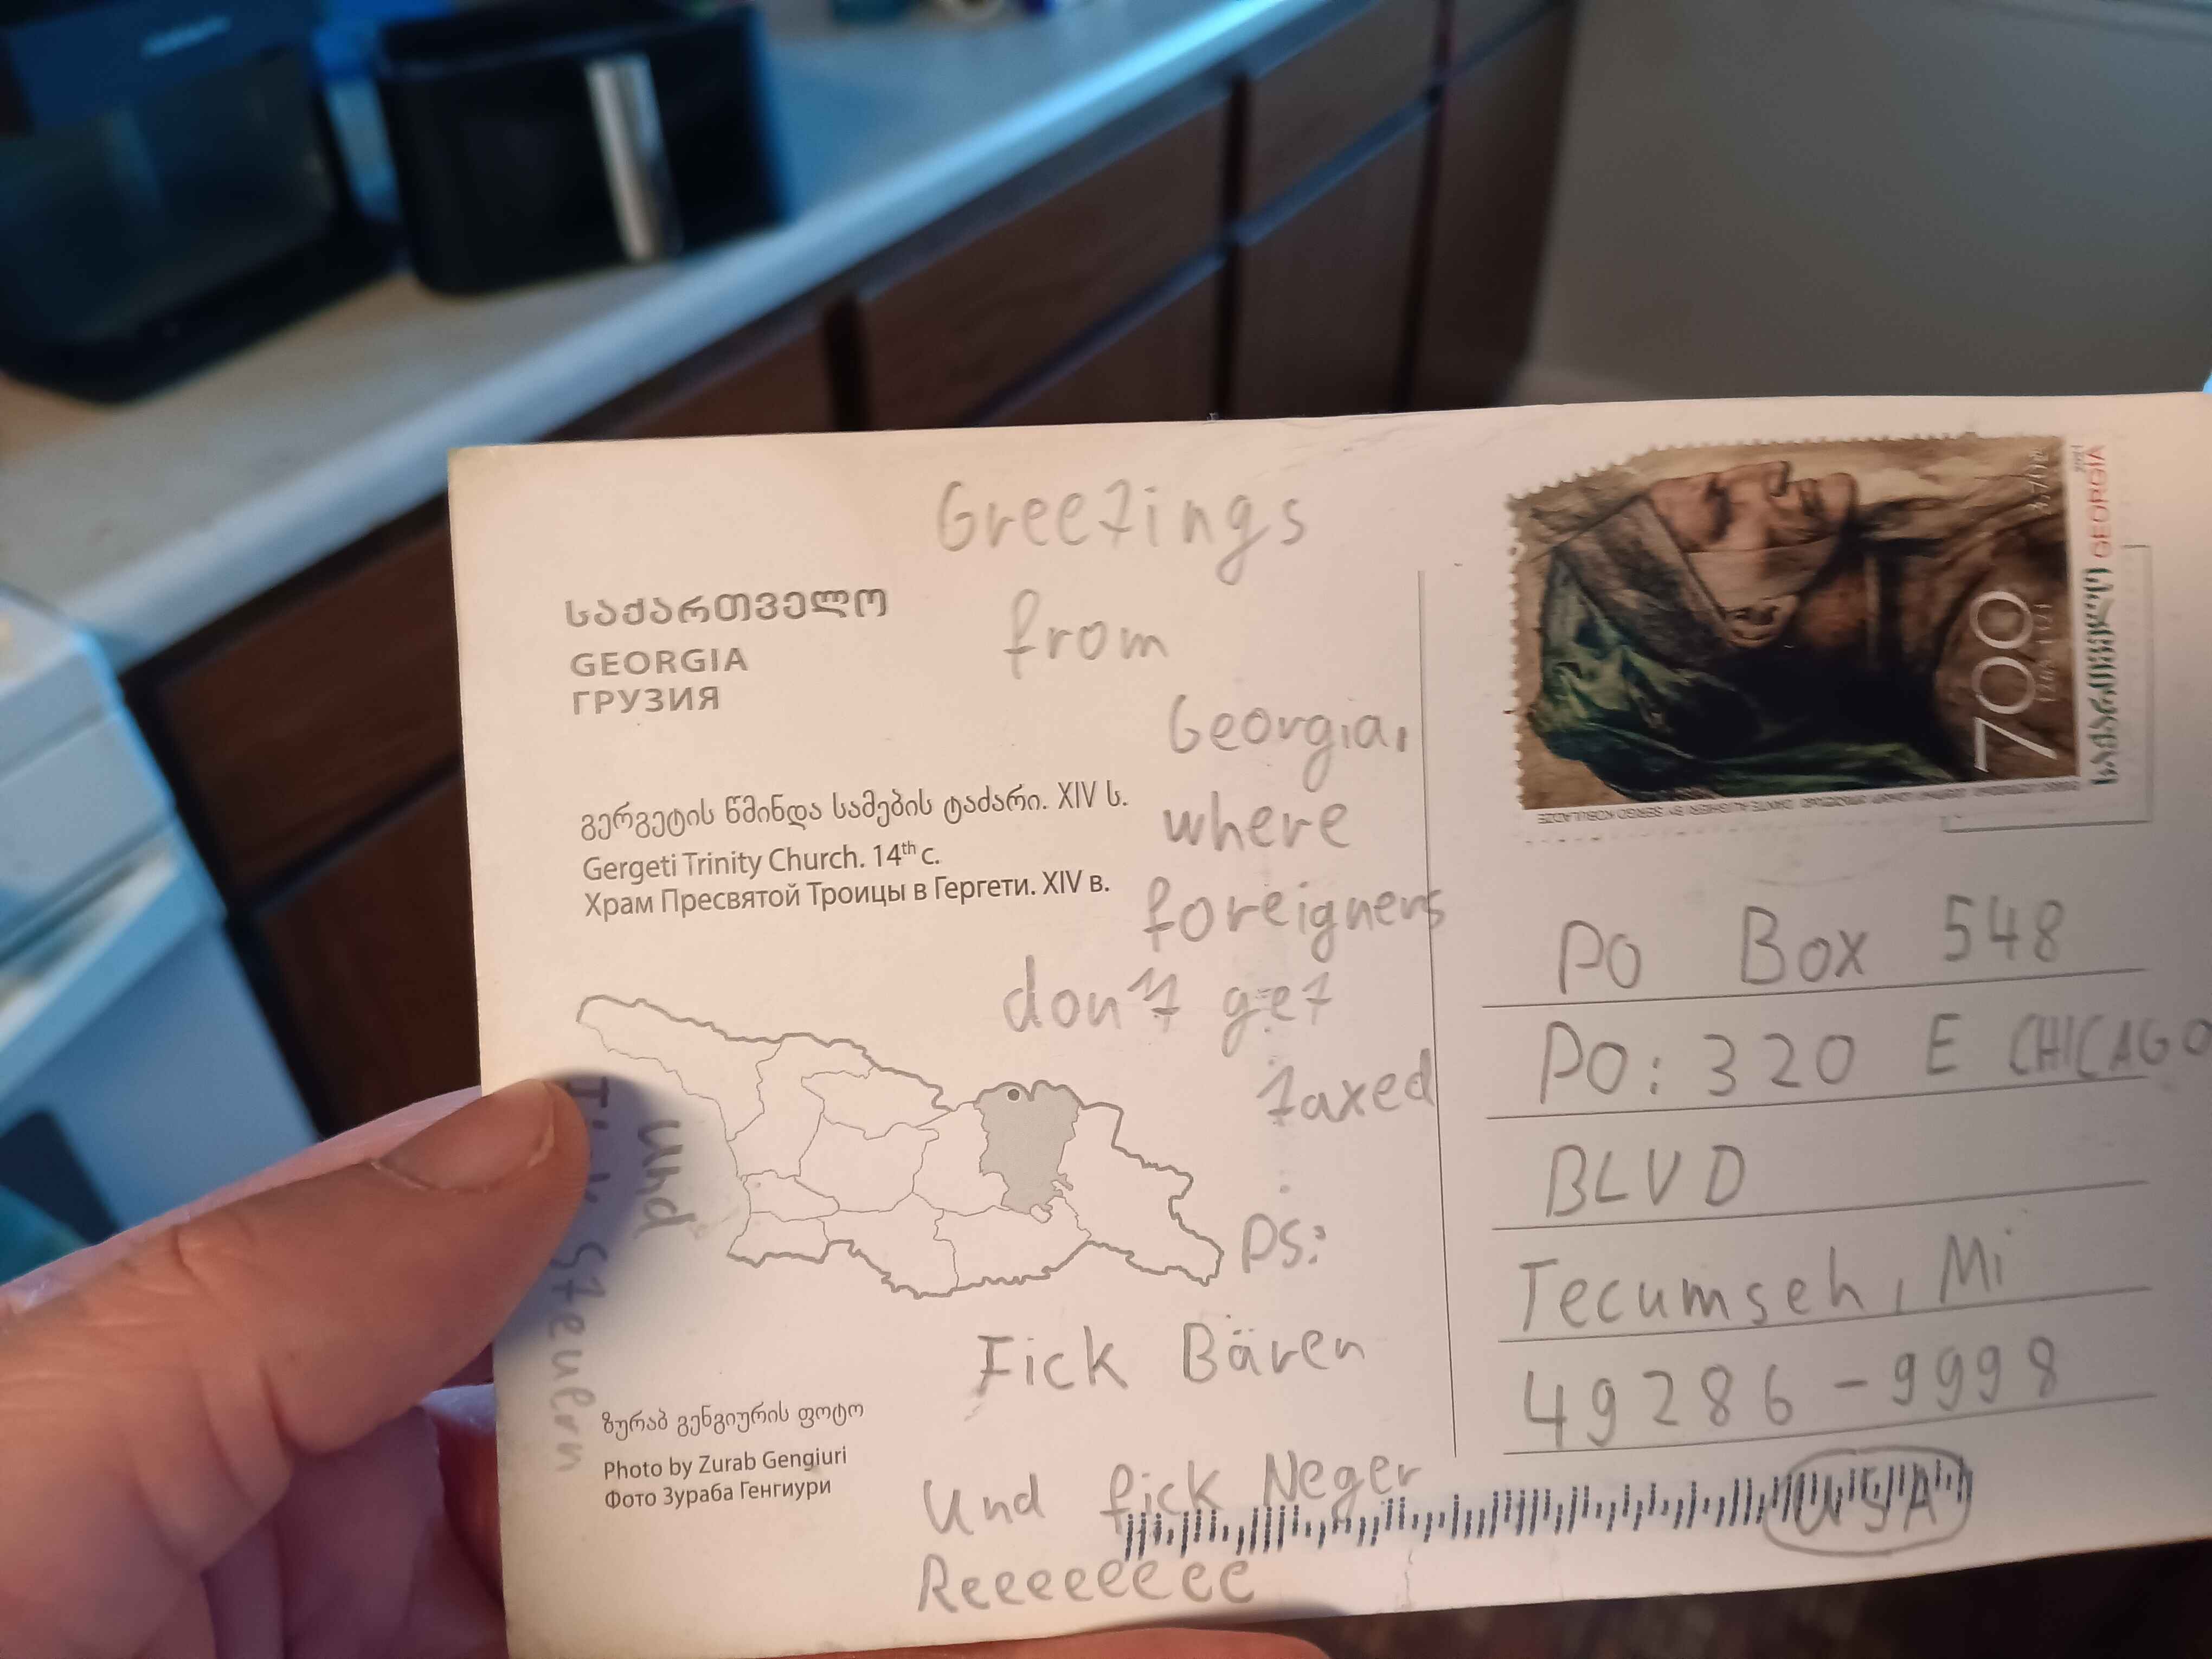 Greetings
from
Georgia,
where
foreigners
don't get
taxed
PS:
Fick Bären
und fick Neger
Reeeeeeee
und
Steuern
საქართველო
GEORGIA
ГРУЗИЯ
გერგეტის წმინდა სამების ტაძარი. XIV ს.
Gergeti Trinity Church. 14th c.
Храм Пресвятой Троицы в Гергети. XIV в.
ზურაბ გენგიურის ფოტო
Photo by Zurab Gengiuri
Фото Зураба Генгиури
საქართველო GEORGIA
700
1321 2021
PO Box 548
PO: 320 E CHICAGO
BLVD
Tecumseh, Mi
49286-9998
USA